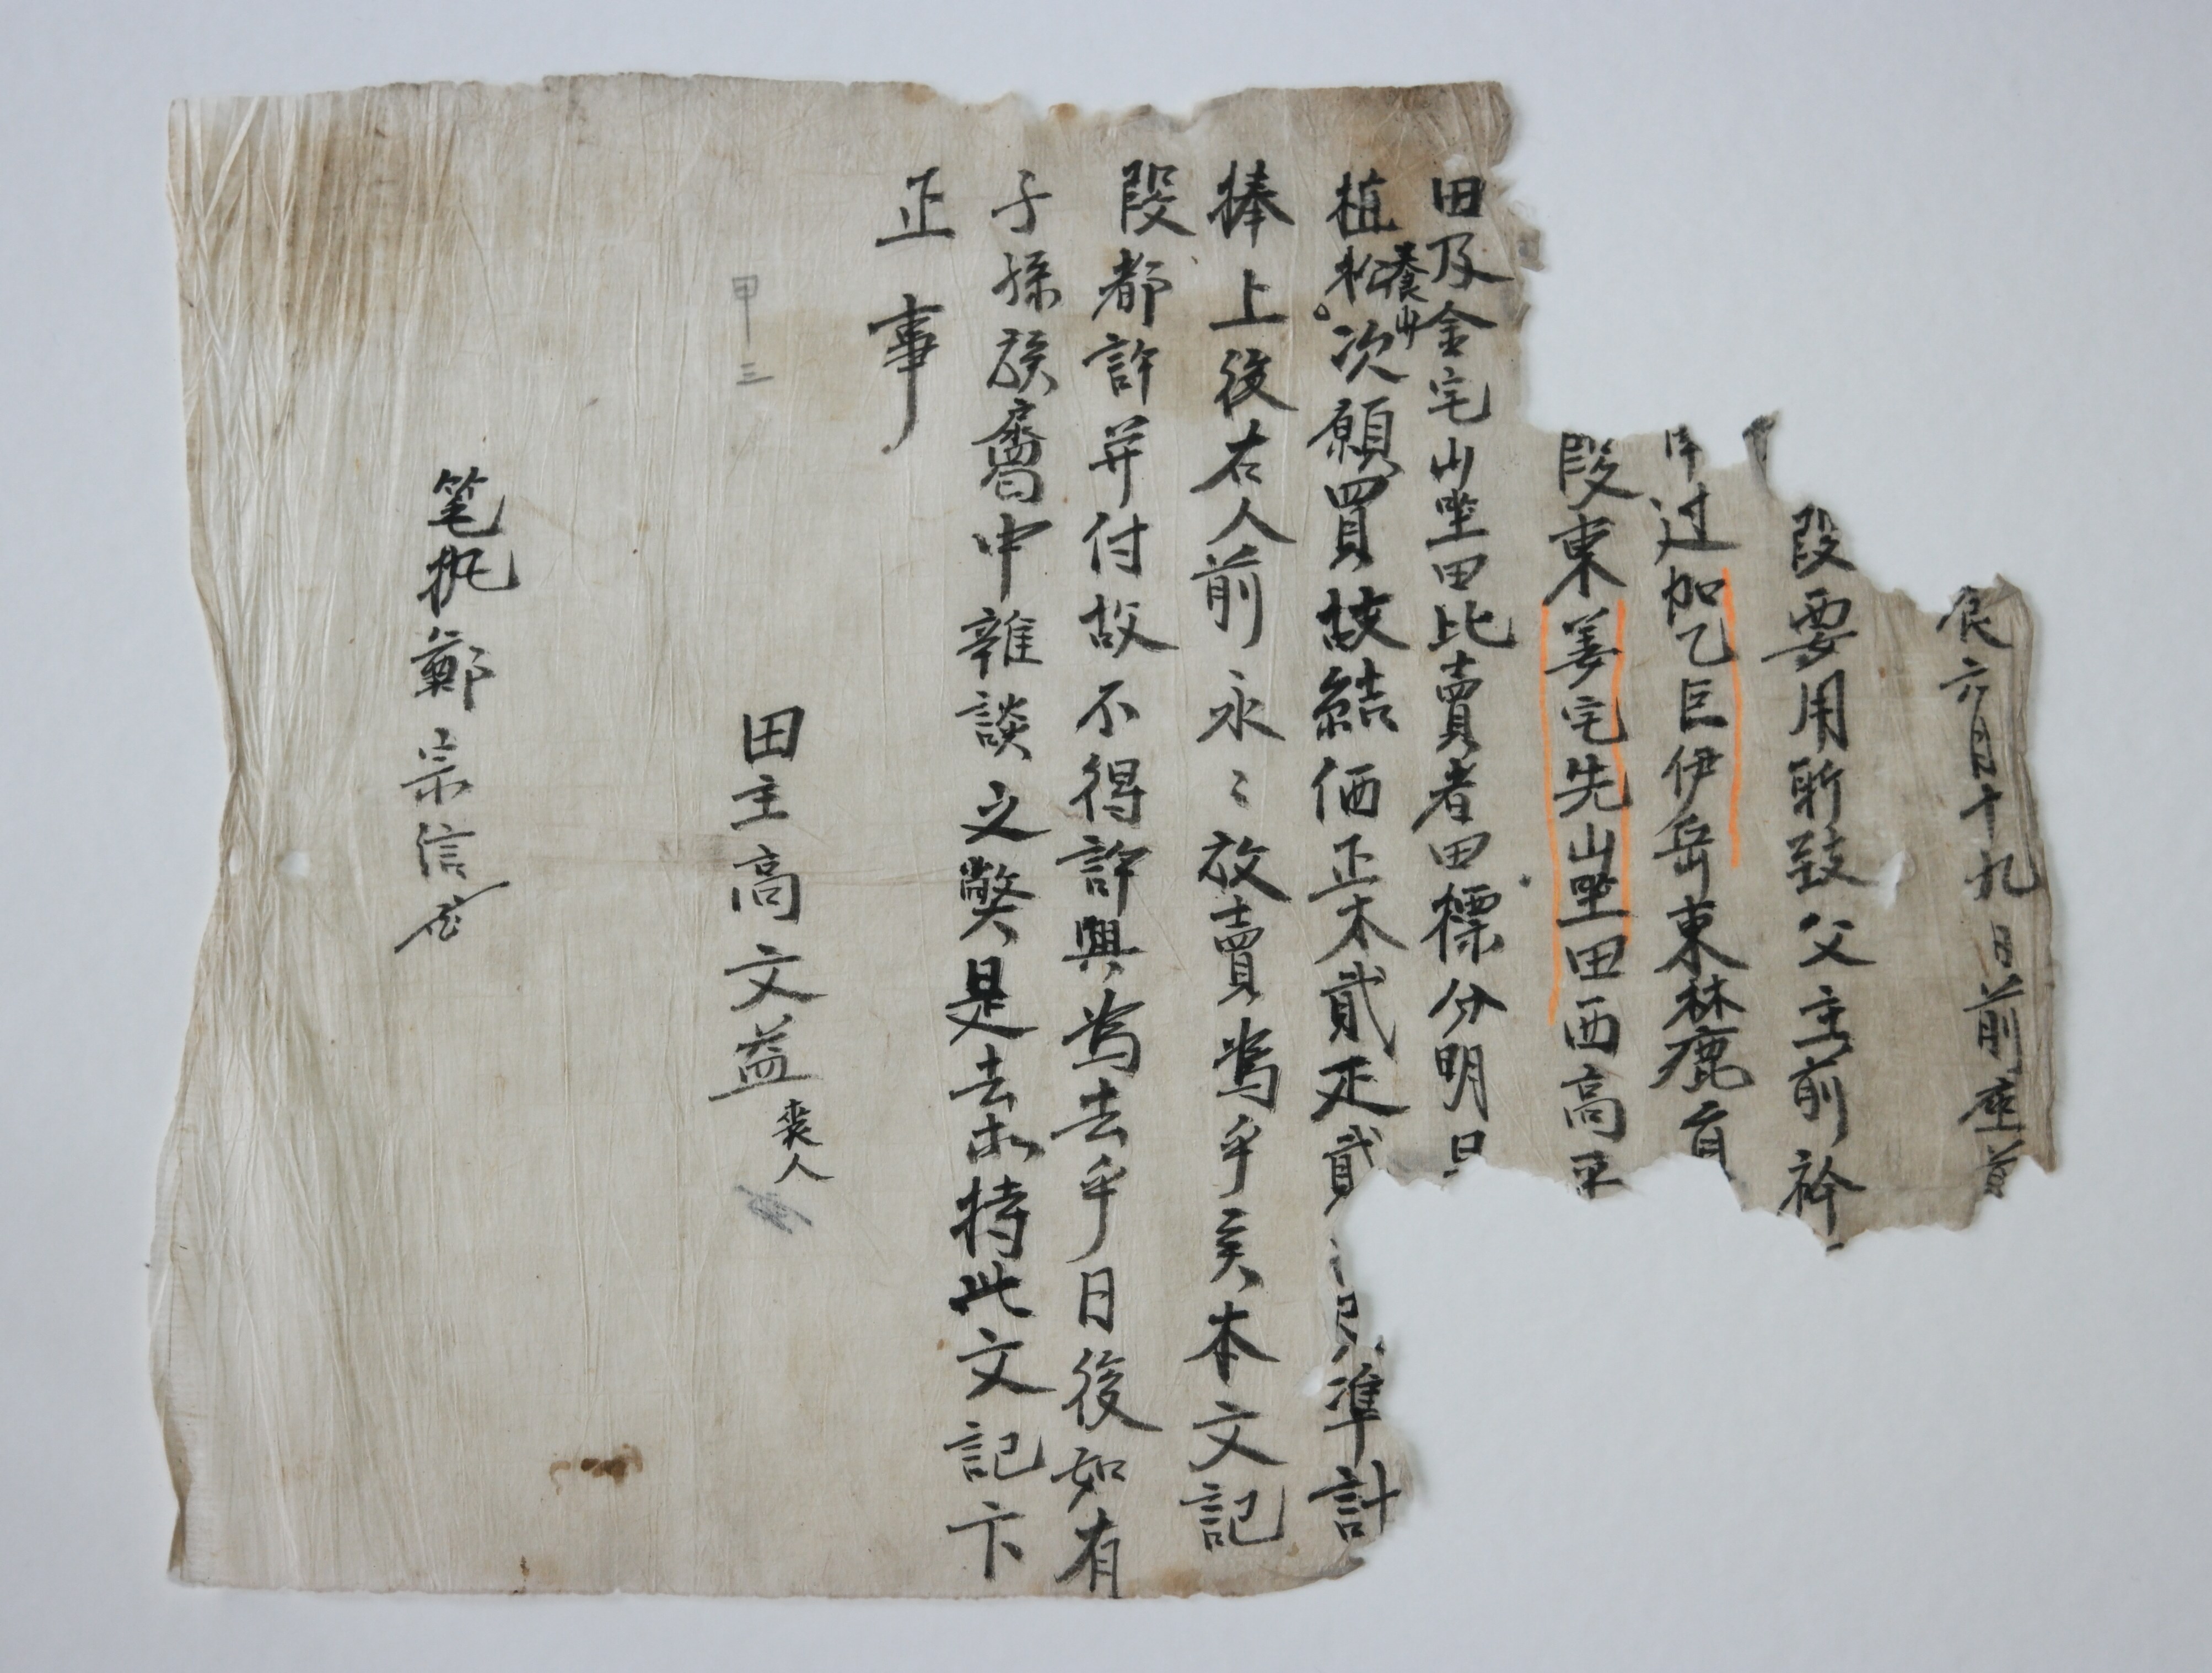 六月十九日前座首
段要用所致父主前衿
过加乙巨伊岳東林鹿盲
段東姜宅先山坐田西高
田及金宅山坐田比賣者田標分明
植松養山次願買故結価正木貳疋貳準計
捧上後右人前永〻放賣爲乎矣本文記
段都許并付故不得許與爲去乎日後如有
子孫族屬中雜談之獘是去等持此文記卞
正事
甲三
田主高文益喪人
笔執鄭宗信